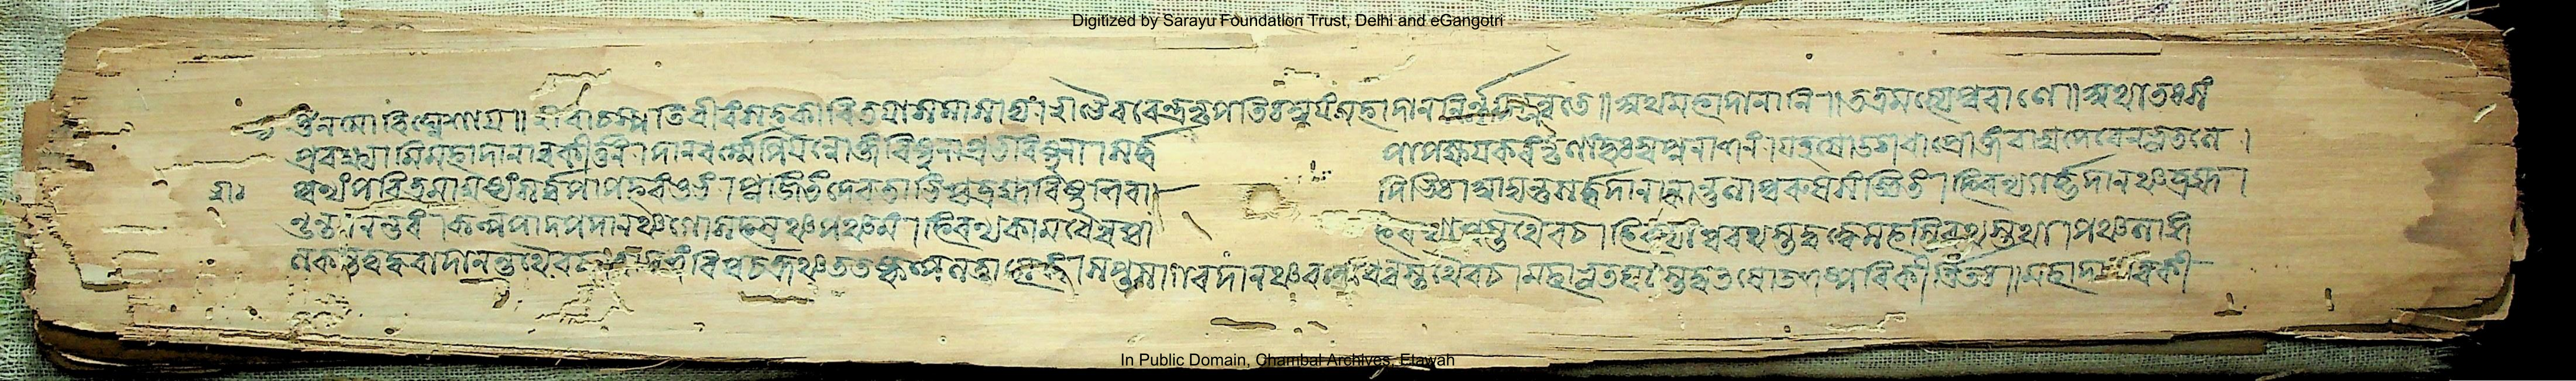 Digitized by Sarayu Foundation Trust, Delhi and eGangotri
ওঁ নমো বিঘ্নেশায়॥ শ্রীবাচস্পতিধীরং সহকারিতয়া সমাসাদ্য। শ্রীভৈরবেন্দ্রনৃপতিঃ স্বয়ং মহাদাননির্ণয়ং কুরুতে॥ অথ মহাদানানি॥ তত্র মৎস্যপুরাণে॥ অথাতঃ সং
প্রবক্ষ্যামি মহাদানানুকীর্ত্তনং। দানধর্ম্মেপি যন্নোক্তং বিষ্ণুনা প্রভবিষ্ণুনা। সর্ব্ব পাপক্ষয়করং নৃণাং দুঃস্বপ্ননাশনং। যত্তৎষোডশধা প্রোক্তং বাসুদেবেন ভূতলে।
পুণ্যং পবিত্রমায়ুষ্যং সর্ব্বপাপহরং শুভং। পূজিতং দেবতাভিশ্চ ব্রহ্মবিষ্ণুশিবা দিভিঃ। আদ্যন্তু সর্ব্বদানানান্তুলাপুরুষসংজ্ঞিতং। হিরণ্যগর্ব্ভদানঞ্চ ব্রহ্মা
ণ্ডন্তদনন্তরং। কল্পপাদপদানঞ্চ গোসহস্রঞ্চ পঞ্চমং। হিরণ্যকামধেনুশ্চ হিরণ্যাশ্বস্তথৈব চ। হিরণ্যাশ্বরথস্তদ্বদ্ধেমহস্তিরথস্তথা। পঞ্চলাঙ্গ
লকন্তদ্বদ্ধরাদানন্তথৈব চ। দ্বাদশং বিশ্বচক্রঞ্চ ততঃ কল্পলতাত্মকং। সপ্তসাগরদানঞ্চ রত্নধেনুস্তথৈব চ। মহাভূতঘটস্তদ্বৎ ষোডশঃ পরিকীর্ত্তিতঃ॥ মহাদানানুকী
In Public Domain, Chambal Archives, Etawah